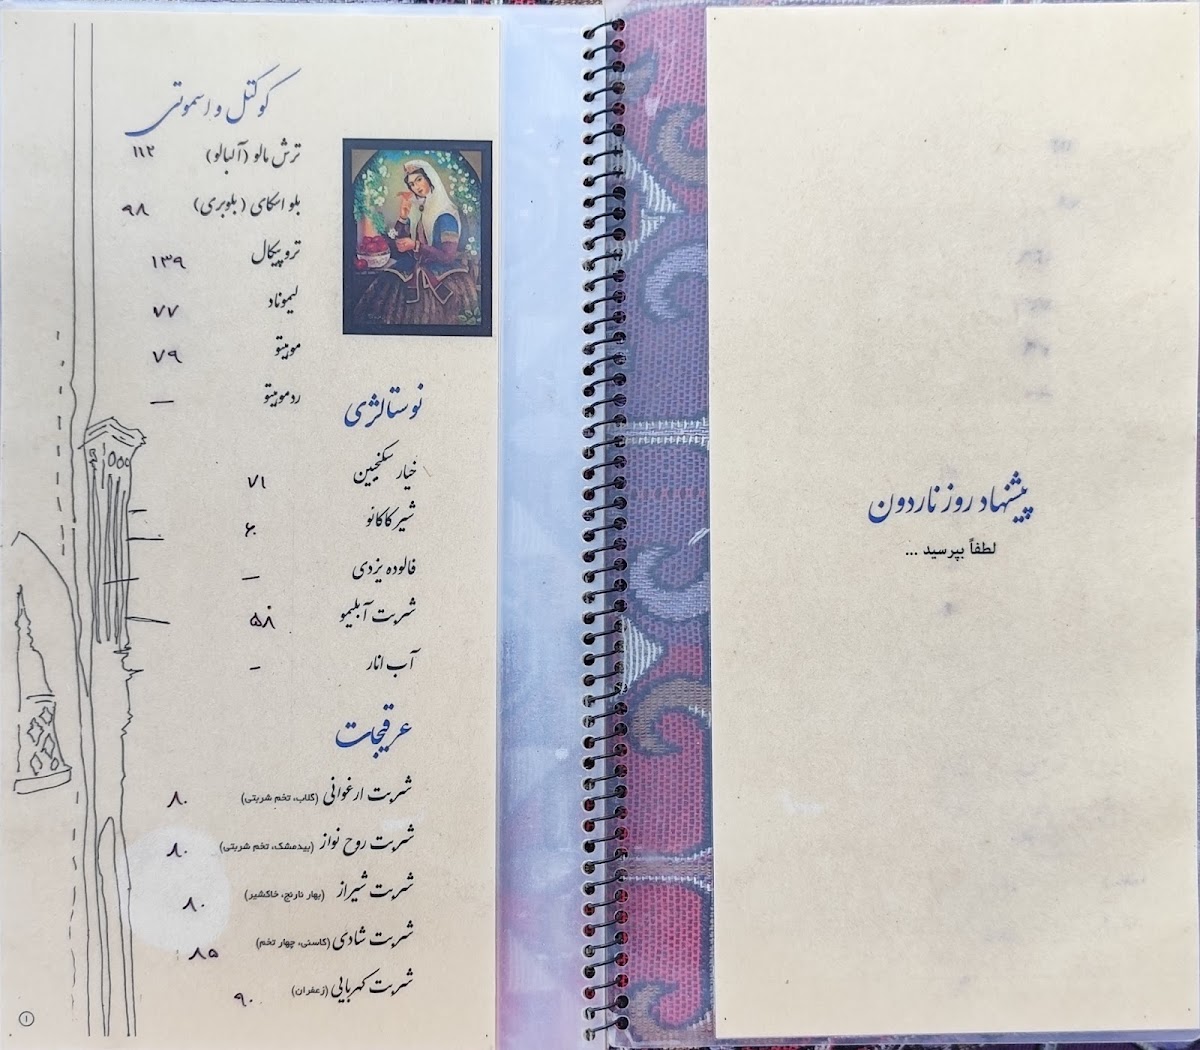 کوکتل و اسموتی
ترش مالو (آلبالو) ۱۱۲
بلو اسکای (بلوبری) ۹۸
تروپیکال ۱۳۹
لیموناد ۷۷
موهیتو ۷۹
رد موهیتو —
نوستالژی
خیار سکنجبین ۷۱
شیر کاکائو ۶۰
فالوده یزدی —
شربت آبلیمو ۵۸
آب انار -
عرقیجات
شربت ارغوانی (گلاب، تخم شربتی) ۸۰
شربت روح نواز (بیدمشک، تخم شربتی) ۸۰
شربت شیراز (بهار نارنج، خاکشیر) ۸۰
شربت شادی (کاسنی، چهار تخم) ۸۵
شربت کهربایی (زعفران) ۹۰
۱
پیشنهاد روز ناردون
لطفاً بپرسید ...